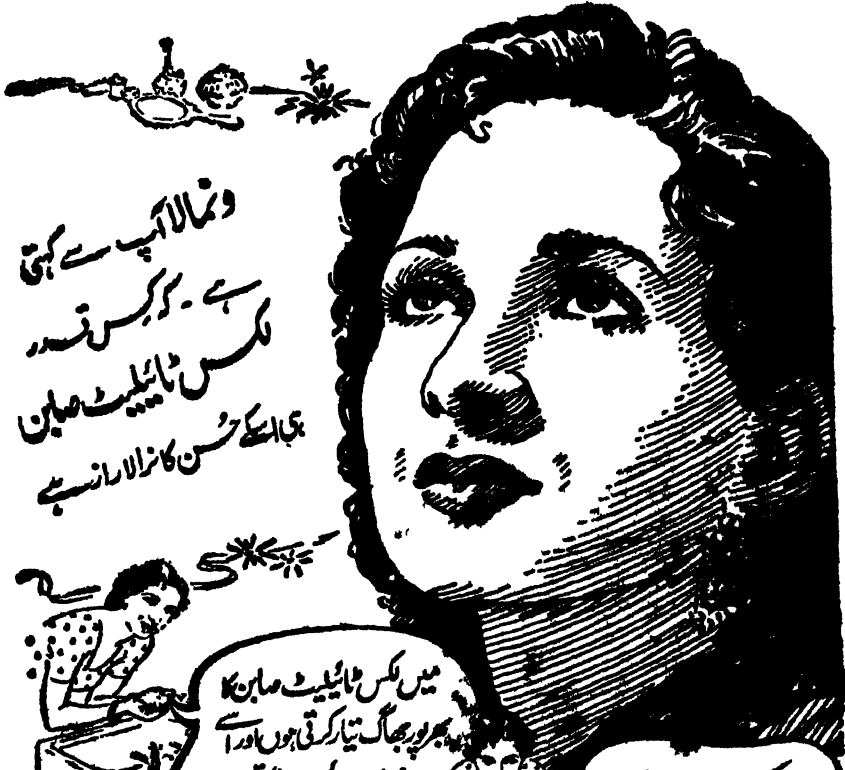 ونمالا آپ سے کہتی
ہے ۔ کہ کس قدر
لکس ٹائیلیٹ صابن
ہی اسکے حُسن کا نرالا راز ہے
میں لکس ٹائیلیٹ صابن کا
بھرپور جھاگ تیار کرتی ہوں اور اسے